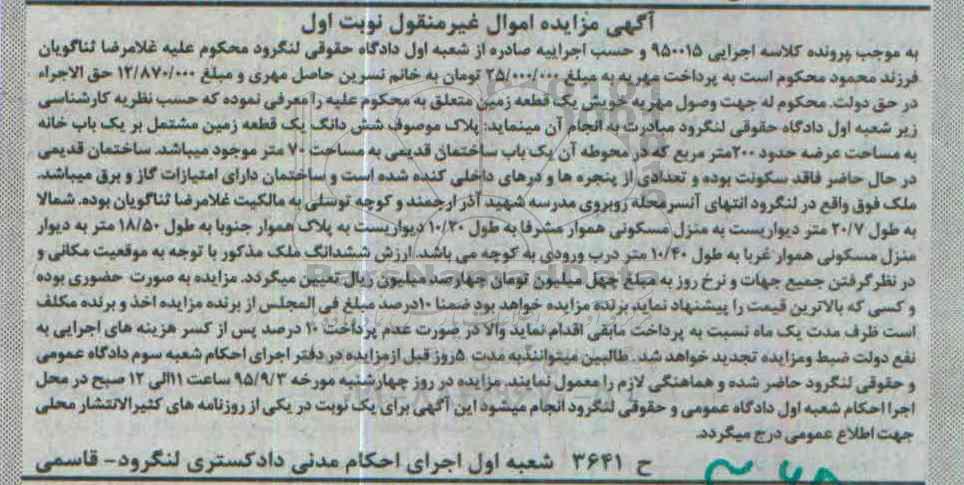 آگهی مزایده اموال غیرمنقول نوبت اول
به موجب پرونده کلاسه اجرایی ۹۵۰۰۱۵ و حسب اجراییه صادره از شعبه اول دادگاه حقوقی لنگرود محکوم علیه غلامرضا ثناگویان
فرزند محمود محکوم است به پرداخت مهریه به مبلغ ۲۵/۰۰۰/۰۰۰ تومان به خانم نسرین حاصل مهری و مبلغ ۱۲/۸۷۰/۰۰۰ حق الاجراء
در حق دولت. محکوم له جهت وصول مهریه خویش یک قطعه زمین متعلق به محکوم علیه را معرفی نموده که حسب نظریه کارشناسی
زیر شعبه اول دادگاه حقوقی لنگرود مبادرت به انجام آن مینماید: پلاک موصوف شش دانگ یک قطعه زمین مشتمل بر یک باب خانه
به مساحت عرصه حدود ۲۰۰متر مربع که در محوطه آن یک باب ساختمان قدیمی به مساحت ۷۰ متر موجود میباشد. ساختمان قدیمی
در حال حاضر فاقد سکونت بوده و تعدادی از پنجره ها و درهای داخلی کنده شده است و ساختمان دارای امتیازات گاز و برق میباشد.
ملک فوق واقع در لنگرود انتهای آنسرمحله روبروی مدرسه شهید آذر ارجمند و کوچه توسلی به مالکیت غلامرضا ثناگویان بوده. شمالا
به طول ۲۰/۷ متر دیواریست به منزل مسکونی هموار مشرفا به طول ۱۰/۲۰ دیواریست به پلاک هموار جنوبا به طول ۱۸/۵۰ متر به دیوار
منزل مسکونی هموار غربا به طول ۱۰/۴۰ متر درب ورودی به کوچه می باشد. ارزش ششدانگ ملک مذکور با توجه به موقعیت مکانی و
در نظر گرفتن جمیع جهات و نرخ روز به مبلغ چهل میلیون تومان چهارصد میلیون ریال تعیین میگردد. مزایده به صورت حضوری بوده
و کسی که بالاترین قیمت را پیشنهاد نماید برنده مزایده خواهد بود ضمنا ۱۰درصد مبلغ فی المجلس از برنده مزایده اخذ و برنده مکلف
است ظرف مدت یک ماه نسبت به پرداخت مابقی اقدام نماید والا در صورت عدم پرداخت ۱۰ درصد پس از کسر هزینه های اجرایی به
نفع دولت ضبط ومزایده تجدید خواهد شد. طالبین میتوانندبه مدت ۵روز قبل ازمزایده در دفتر اجرای احکام شعبه سوم دادگاه عمومی
و حقوقی لنگرود حاضر شده و هماهنگی لازم را معمول نمایند. مزایده در روز چهارشنبه مورخه ۹۵/۹/۳ ساعت ۱۱الی ۱۲ صبح در محل
اجرا احکام شعبه اول دادگاه عمومی و حقوقی لنگرود انجام میشود این آگهی برای یک نوبت در یکی از روزنامه های کثیرالانتشار محلی
جهت اطلاع عمومی درج میگردد.
ح ۳۶۴۱ شعبه اول اجرای احکام مدنی دادگستری لنگرود- قاسمی
ParsNamadData